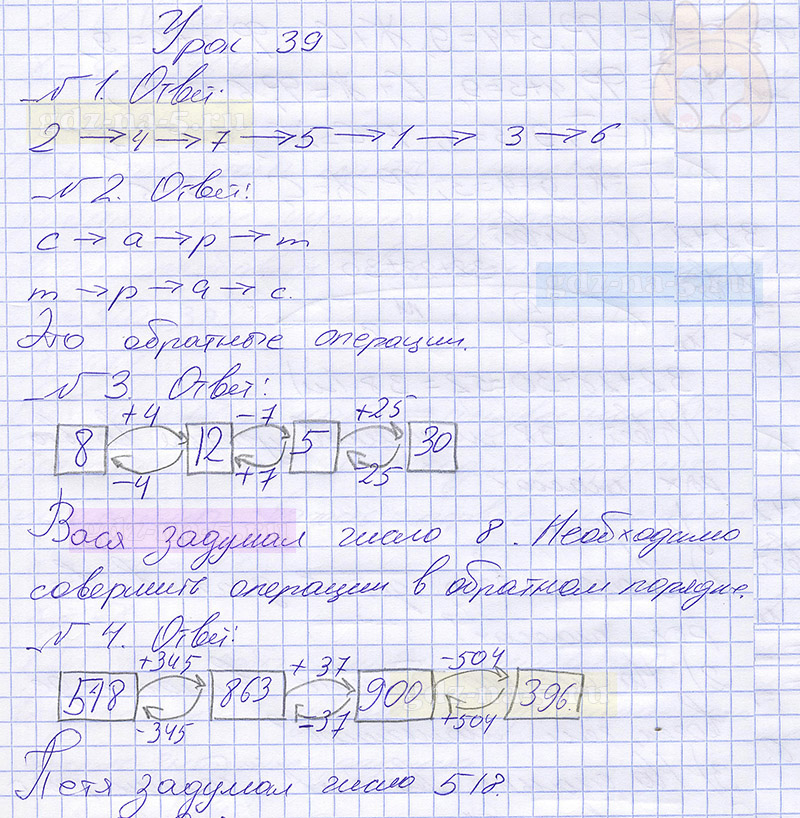 Урок 39
№ 1. Ответ:
2 → 4 → 7 → 5 → 1 → 3 → 6
№ 2. Ответ:
с → а → р → т
т → р → а → с.
Это обратные операции.
№ 3. Ответ:
+4 -7 +25
8 12 5 30
-4 +7 -25
Вася задумал число 8. Необходимо
совершить операции в обратном порядке.
№ 4. Ответ:
+345 + 37 -504
518 863 900 396.
-345 -37 +504
Петя задумал число 518.